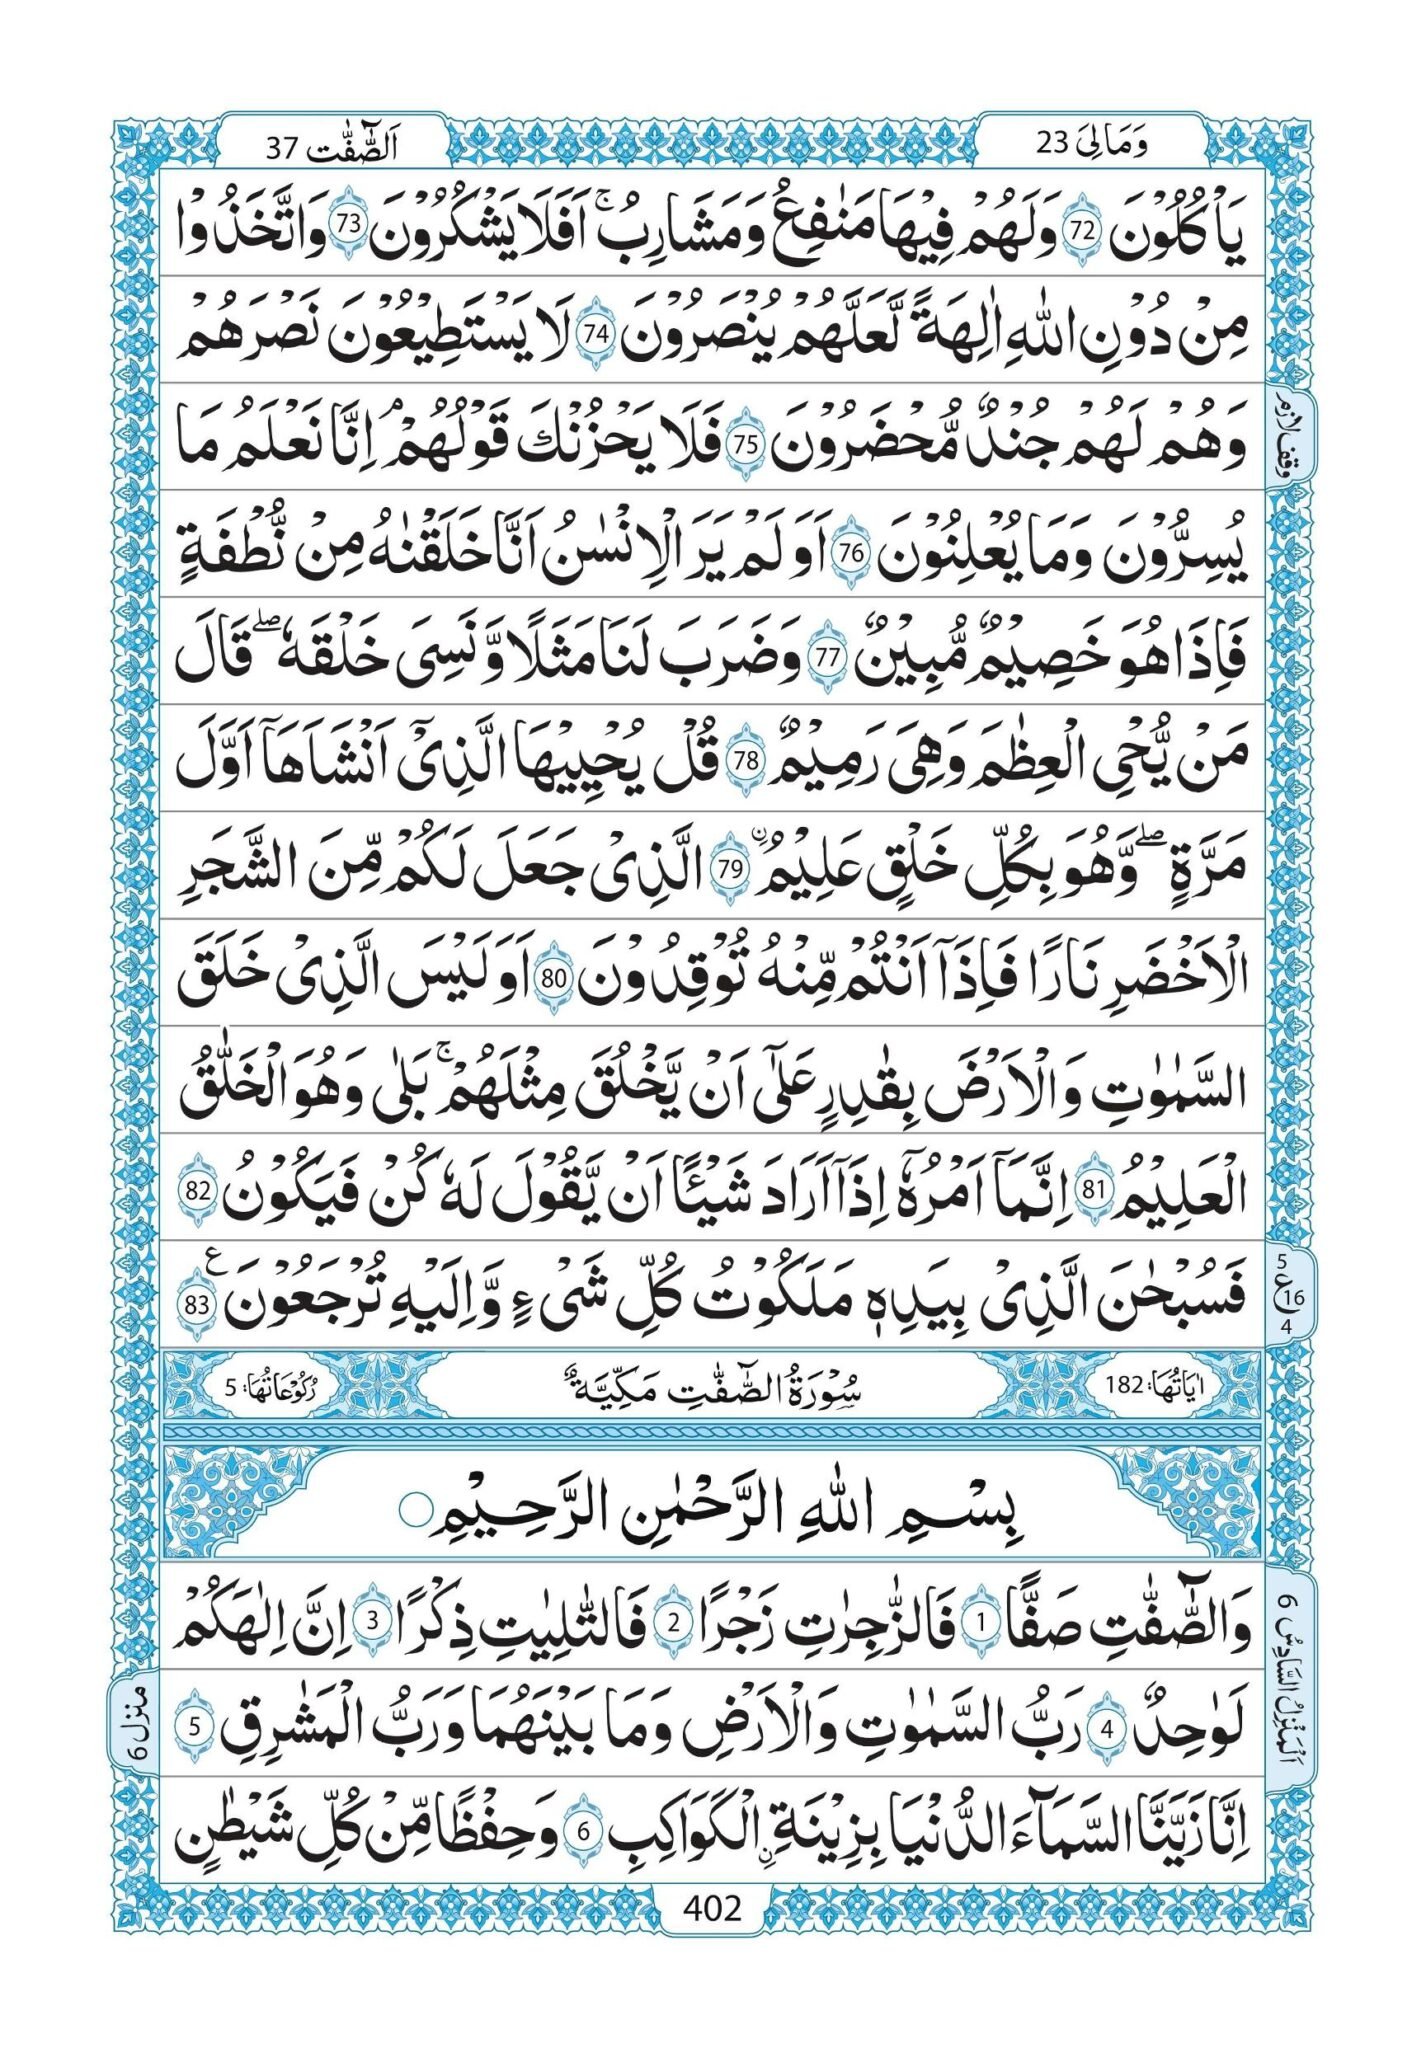 وَمَالِیَ 23
اَلصّٰٓفّٰت 37
یَاْكُلُوْنَ 72 وَلَهُمْ فِیْهَا مَنٰفِعُ وَمَشَارِبُ ۚ اَفَلَا یَشْكُرُوْنَ 73 وَاتَّخَذُوْا
مِنْ دُوْنِ اللّٰهِ اٰلِهَةً لَّعَلَّهُمْ یُنْصَرُوْنَ 74 لَا یَسْتَطِیْعُوْنَ نَصْرَهُمْ
وَهُمْ لَهُمْ جُنْدٌ مُّحْضَرُوْنَ 75 فَلَا یَحْزُنْكَ قَوْلُهُمْ ۘ اِنَّا نَعْلَمُ مَا
وقف لازم
یُسِرُّوْنَ وَمَا یُعْلِنُوْنَ 76 اَوَلَمْ یَرَ الْاِنْسٰنُ اَنَّا خَلَقْنٰهُ مِنْ نُّطْفَةٍ
فَاِذَا هُوَ خَصِیْمٌ مُّبِیْنٌ 77 وَضَرَبَ لَنَا مَثَلًا وَّنَسِیَ خَلْقَهٗ ۖ قَالَ
مَنْ یُّحْیِ الْعِظٰمَ وَهِیَ رَمِیْمٌ 78 قُلْ یُحْیِیْهَا الَّذِیْۤ اَنْشَاَهَاۤ اَوَّلَ
مَرَّةٍ ۖ وَّهُوَ بِكُلِّ خَلْقٍ عَلِیْمُ ۨ 79 الَّذِیْ جَعَلَ لَكُمْ مِّنَ الشَّجَرِ
الْاَخْضَرِ نَارًا فَاِذَاۤ اَنْتُمْ مِّنْهُ تُوْقِدُوْنَ 80 اَوَلَیْسَ الَّذِیْ خَلَقَ
السَّمٰوٰتِ وَالْاَرْضَ بِقٰدِرٍ عَلٰۤی اَنْ یَّخْلُقَ مِثْلَهُمْ ۚ بَلٰی وَهُوَ الْخَلّٰقُ
الْعَلِیْمُ 81 اِنَّمَاۤ اَمْرُهٗۤ اِذَاۤ اَرَادَ شَیْـًٔا اَنْ یَّقُوْلَ لَهٗ كُنْ فَیَكُوْنُ 82
فَسُبْحٰنَ الَّذِیْ بِیَدِهٖ مَلَكُوْتُ كُلِّ شَیْءٍ وَّاِلَیْهِ تُرْجَعُوْنَ 83 ع
5
ع 16
4
اٰیَاتُهَا: 182
سُوْرَةُ الصّٰٓفّٰتِ مَكِّیَّةٌ
رُكُوْعَاتُهَا: 5
بِسْمِ اللّٰهِ الرَّحْمٰنِ الرَّحِیْمِ
وَالصّٰٓفّٰتِ صَفًّا 1 فَالزّٰجِرٰتِ زَجْرًا 2 فَالتّٰلِیٰتِ ذِكْرًا 3 اِنَّ اِلٰهَكُمْ
لَوٰحِدٌ 4 رَبُّ السَّمٰوٰتِ وَالْاَرْضِ وَمَا بَیْنَهُمَا وَرَبُّ الْمَشٰرِقِ 5
اَلْمَنْزِلُ السَّادِسُ 6
منزل 6
اِنَّا زَیَّنَّا السَّمَآءَ الدُّنْیَا بِزِیْنَةِ ۨ الْكَوَاكِبِ 6 وَحِفْظًا مِّنْ كُلِّ شَیْطٰنٍ
402